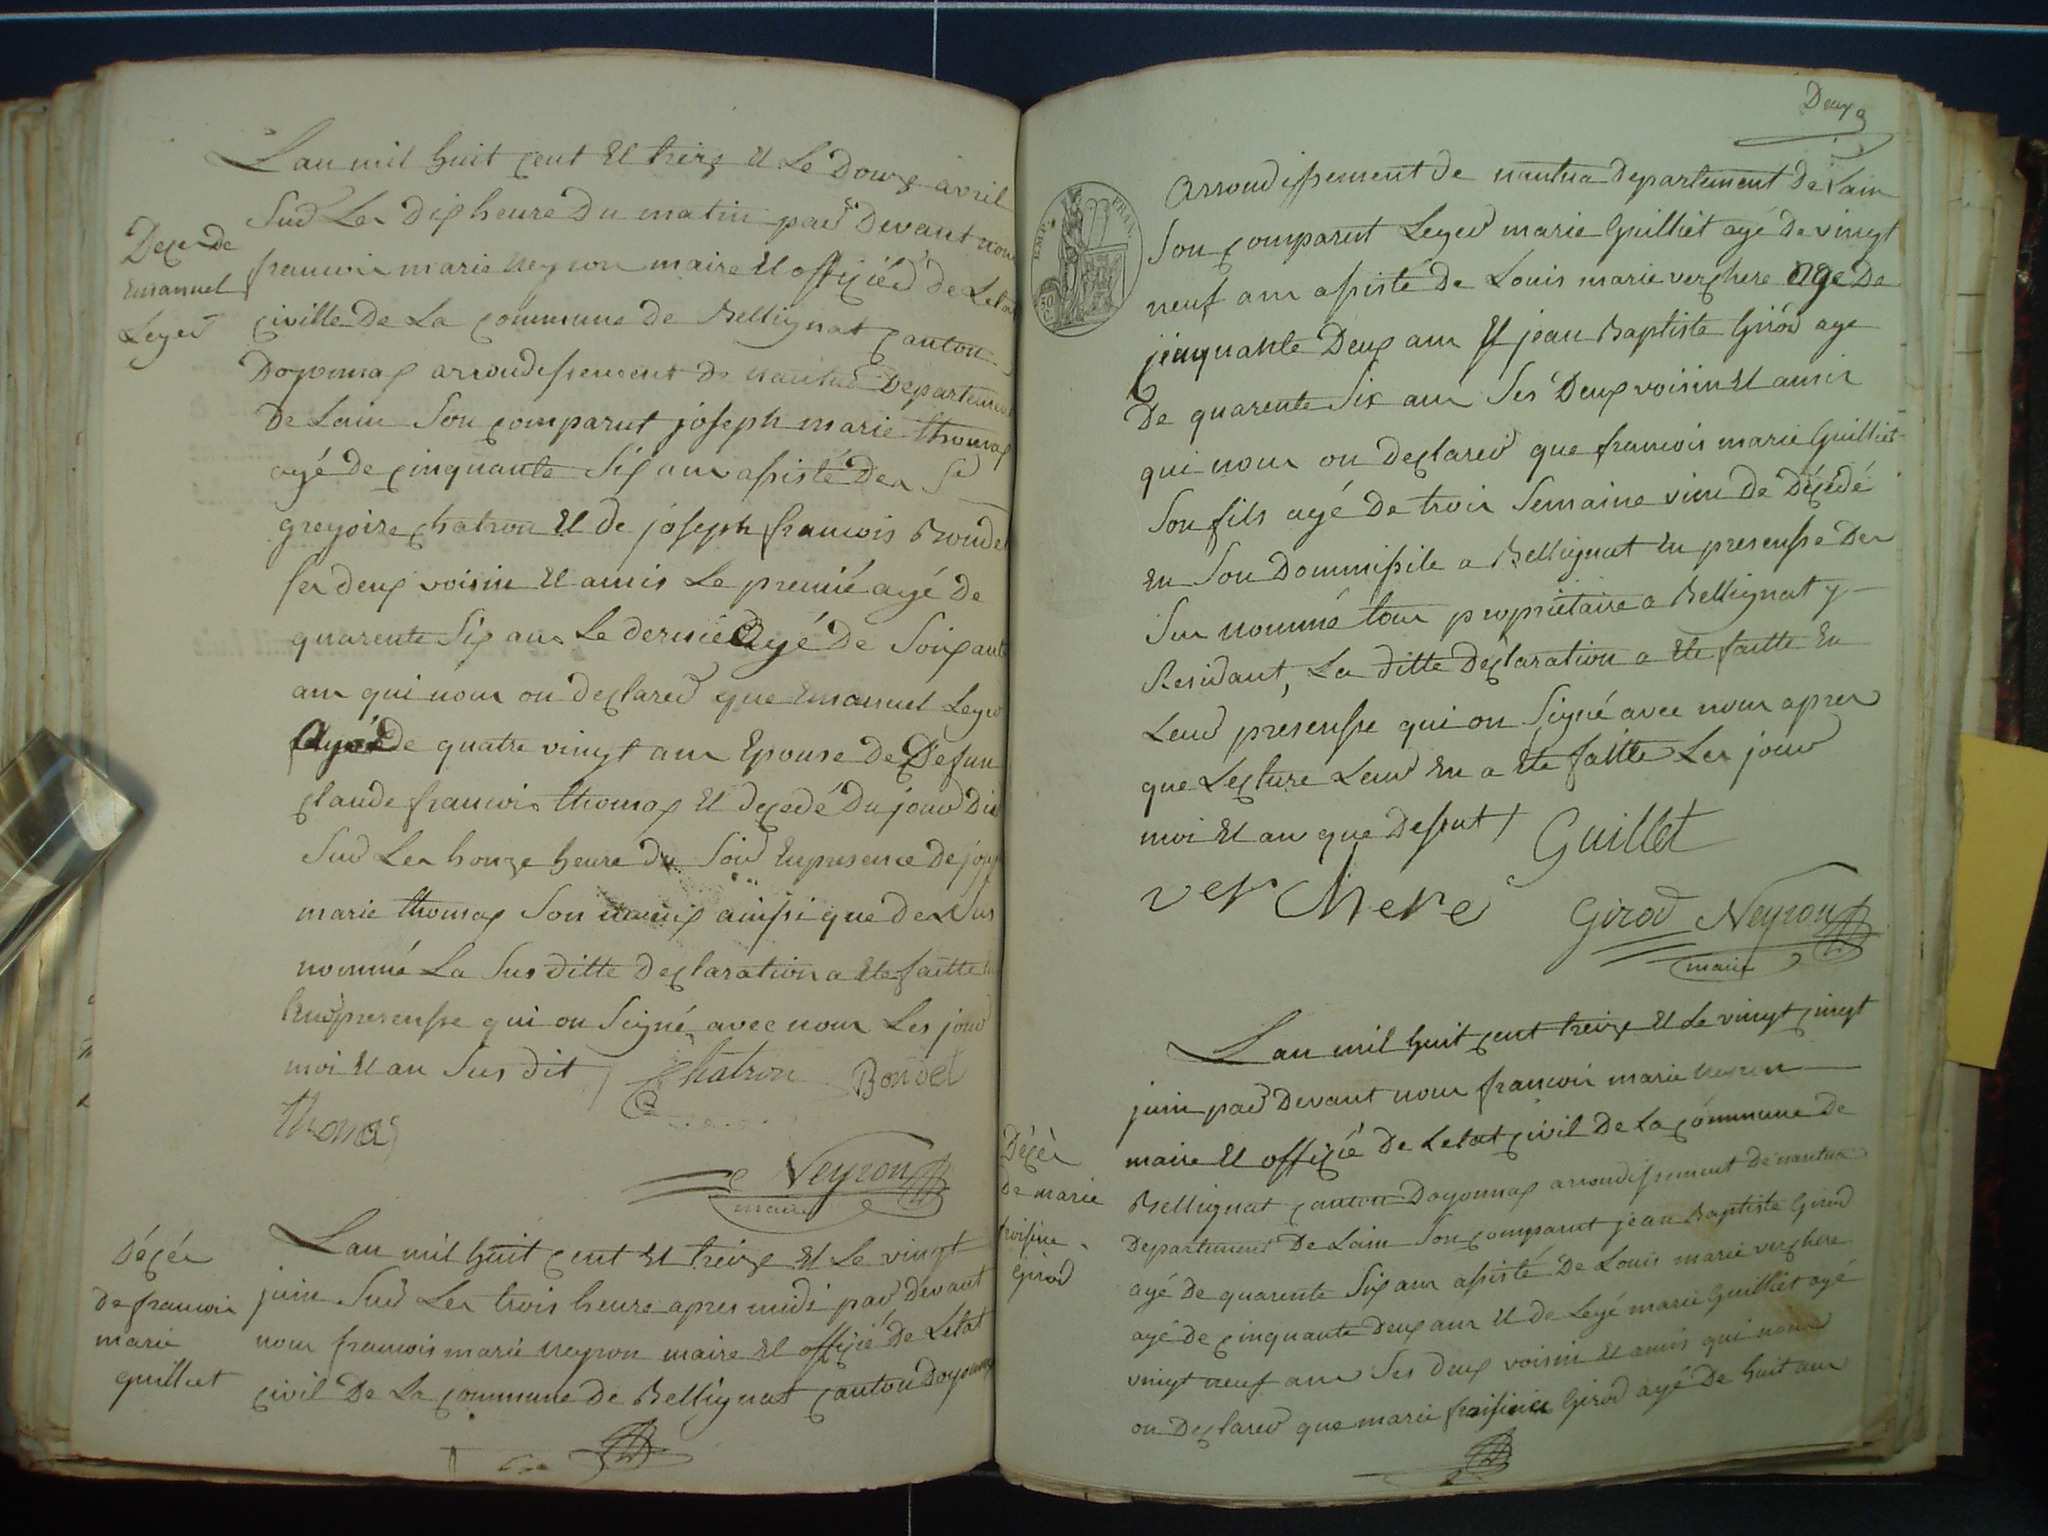 Lan mil huit cent Et treize Et Le Douze avril
Sur Les Dix heure Du matin par Devant nous
francois marie neyron maire Et officiér de Letat
civille De La commune de Bellignat canton
Doyonnax arrondissement de nantua Departement
De Lain Son comparut joseph marie thomas
agé de cinquante Six ans assisté Des Sr
gregoire chatron Et de joseph francois Bondet
ses deux voisin Et amis Le premié agé De
quarente Six ans Le dernier agé De Soixante
ans qui nous on declarer que Emanuel Leger
agé De quatre vingt ans Epouse de Defun
claude francois thomas Et decedé Du jour Dié
Sur Les honze heure du Soir En presence De josph
marie thomas Son ainssi que des Sus
nommé La Sus ditte declaration a Ete faitte en
leur presensse qui on Seigné avec nous Les jour
moi Et an Sus dit
Chatron Bondet
thomas
Neyron
maire
Dece de
Emanuel
Leger
Lan mil huit cent Et treize Et Le vingt
juin Sur Les trois heure apres midi par Devant
nous francois marie neyron maire Et officié De Letat
civil De La commune De Bellignat canton Doyonnax
Décés
De francois
marie
guilliet
Deux
EMP. FRAN.
50 C.
arrondissement De nantua Departement De Lain
Son comparut Leger marie Guilliet agé De vingt
neuf ans assisté De Louis marie verchere age De
cinquante Deux ans Et jean Baptiste Girod age
De quarente Six ans Ses Deux voisin Et amis
qui nous on Declarer que francois marie Guilliet
Son fils agé De trois Semaine vien de Décédé
En Son Dommissile a Bellignat En presensse Des
Sus nommé tous proprietaire a Bellignat y
Residant, La ditte Declaration a Ete faitte En
Leur presensse qui on Signé avec nous apres
que Lecture Leur En a Ete faitte Les jour
moi Et an que Dessut
Guillet
verchere
Girod Neyron
maire
Lan mil huit cent treize Et Le vingt cinqt
juin par Devant nous francois marie neyron
maire Et officié De Letat civil De La commune De
Bellignat canton Doyonnax arrondissement De nantua
Departement De Lain Son comparut jean Baptiste Girod
agé De quarente Six ans assisté De Louis marie verchere
agé De cinquante Deux ans Et de Legé marie Guilliet agé
vingt neuf ans Ses deux voisin Et amis qui nous
on Declarer que marie Girod agé De huit ans
Décès
De marie
Girod